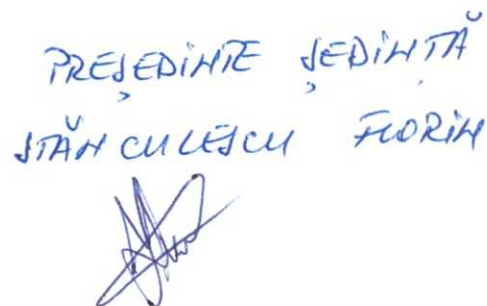 PREȘEDINTE ȘEDINȚĂ
STĂNCULESCU FLORIN